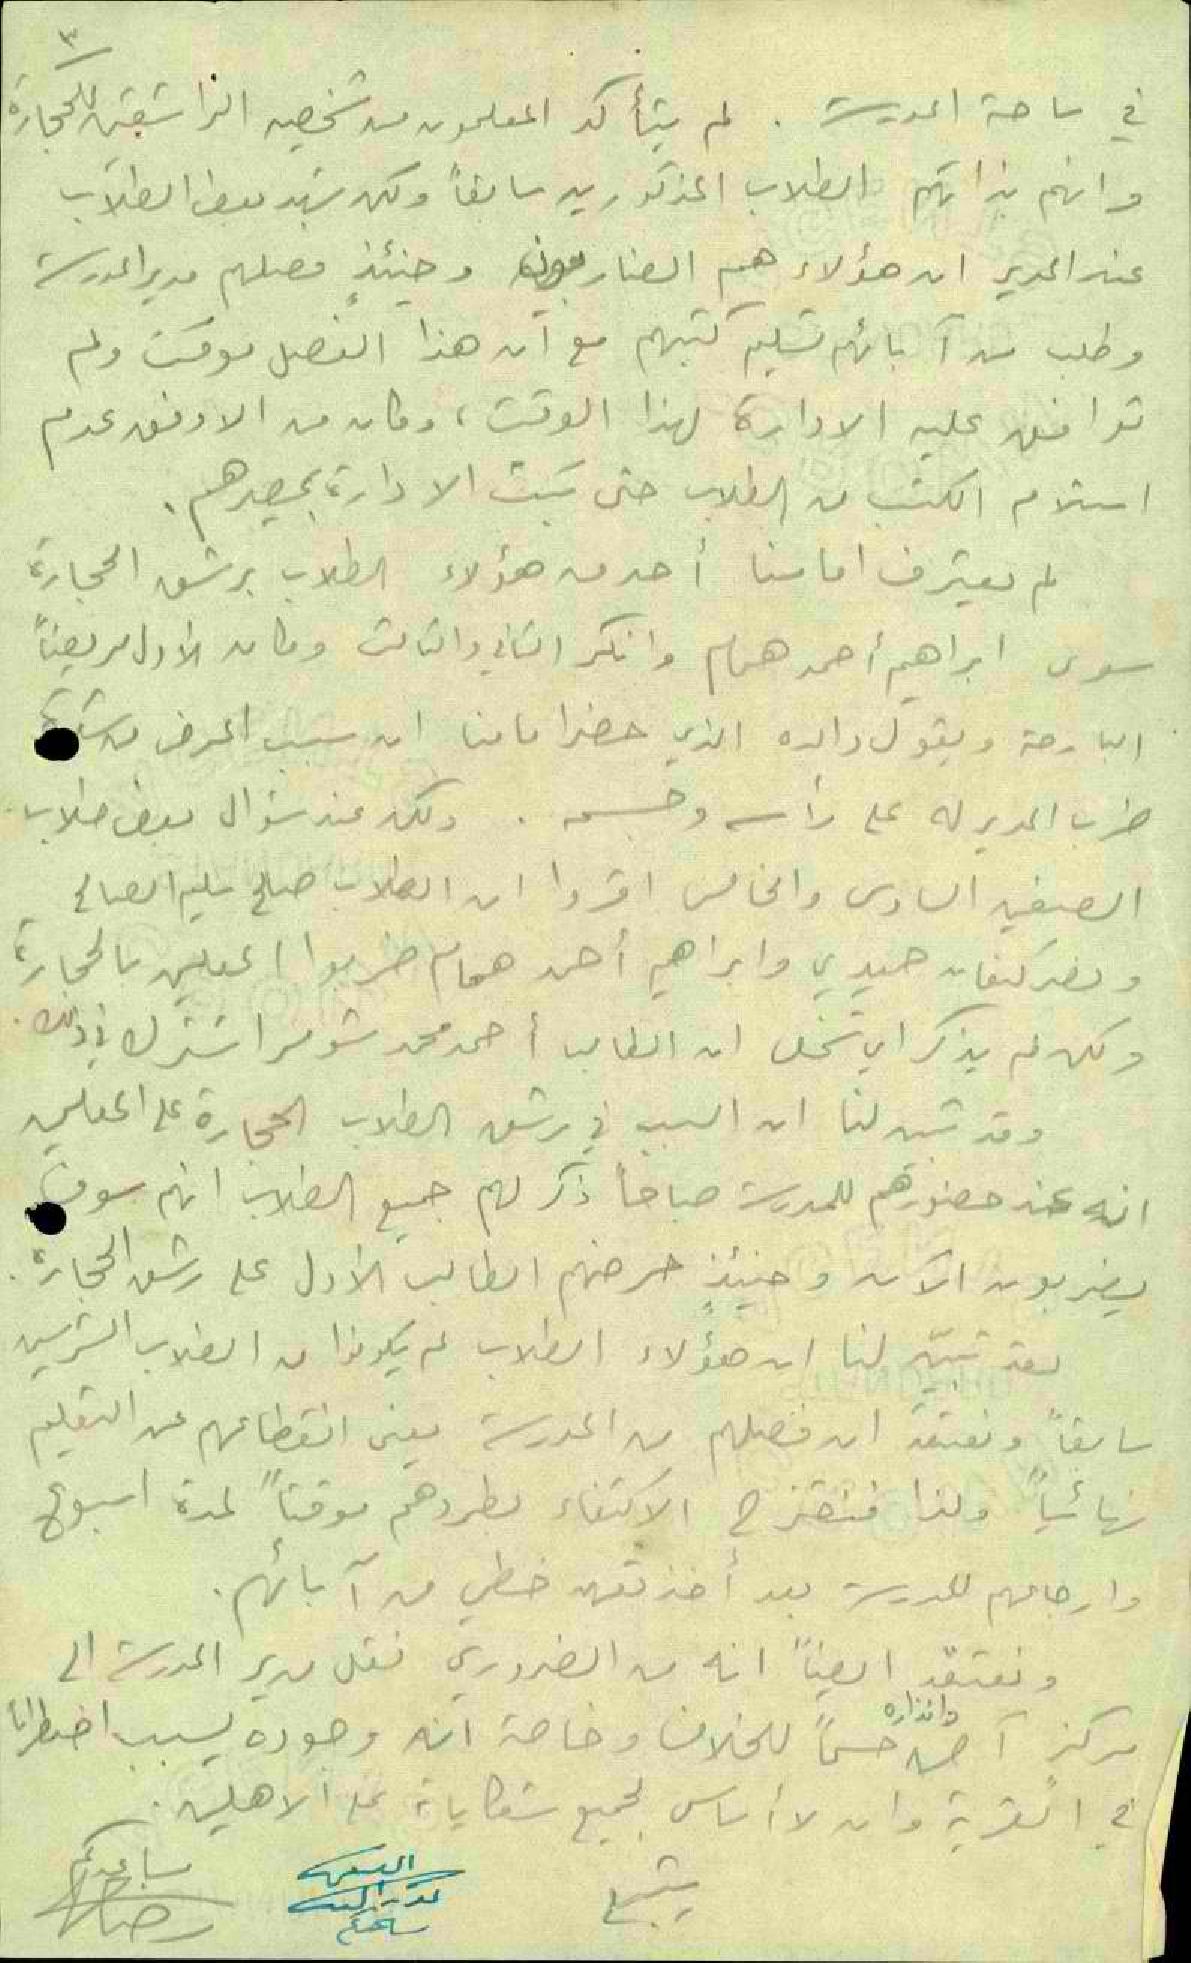 ٣
في ساحة المدرسة . لم يتأكد المعلمون من شخصيه الراشقين للحجارة
وانهم بذاتهم الطلاب المذكورين سابقاً ولكن شهد بعض الطلاب
عند المدير ان هؤلاء هم الضاربون وحينئذٍ فصلهم مدير المدرسة
وطلب من آبائهم تسليم كتبهم مع ان هذا الفصل موقت ولم
توافق عليه الادارة لهذا الوقت ، وكان من الاوفق عدم
استلام الكتب من الطلاب حتى تبت الادارة بمصيرهم .
لم يعترف امامنا أحد من هؤلاء الطلاب برشق الحجارة
سوى ابراهيم أحمد همام وانكر الثاني والثالث وكان الاول مريضاً
البارحة ويقول والده الذي حضر امامنا ان سبب المرض من
ضرب المدير له على رأسه وجسمه . ولكن عند سؤال بعض طلاب
الصفين السادس والخامس اقروا ان الطلاب صالح سليم الصالح
ونضر كنعان حميدي وابراهيم أحمد همام ضربوا المعلمين بالحجارة
ولكن لم يذكر اي شخص ان الطالب أحمد محمد شومر اشترك في ذلك .
وقد تبين لنا ان السبب في رشق الطلاب الحجارة على المعلمين
انه عند حضورهم للمدرسة صباحاً ذكر لهم جميع الطلاب انهم سوف
يضربون الآن وحينئذٍ حرضهم الطالب الاول على رشق الحجارة .
لقد تبيّن لنا ان هؤلاء الطلاب لم يكونوا من الطلاب الشرسين
سابقاً ونعتقد ان فصلهم من المدرسة يعني انقطاعهم عن التعليم
نهائياً ولذا فنقترح الاكتفاء بطردهم موقتاً لمدة اسبوع
وارجاعهم للمدرسة بعد أخذ تعهد خطي من آبائهم .
ونعتقد ايضاً انه من الضروري نقل مدير المدرسة الى
وانذاره
مركز آخر حسماً للخلاف وخاصة انه وجوده يسبب اضطرابا
في القرية وان لا أساس لجميع شكاياته على الاهلين .
يتبع
مساعدكم